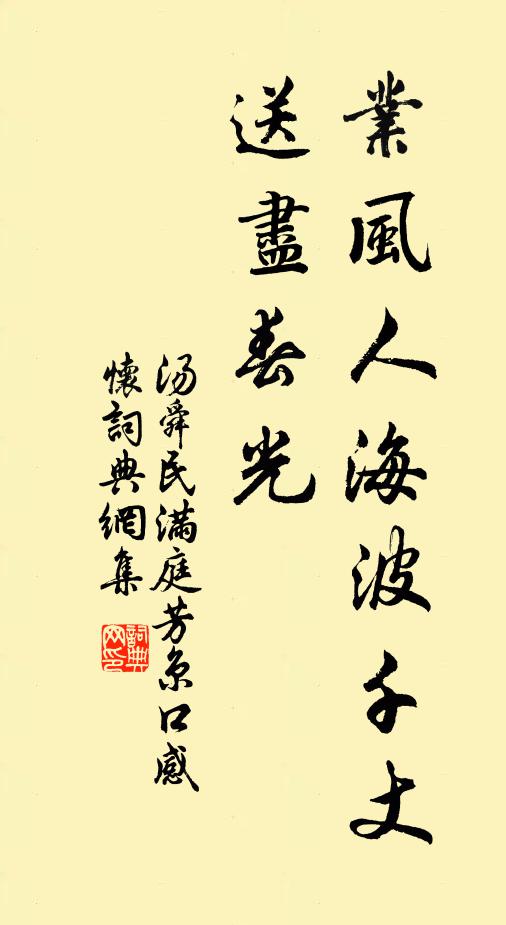 業風人海波千丈
送盡春光
湯舜民滿庭芳京口感
懷詞典網集
詞典
网印